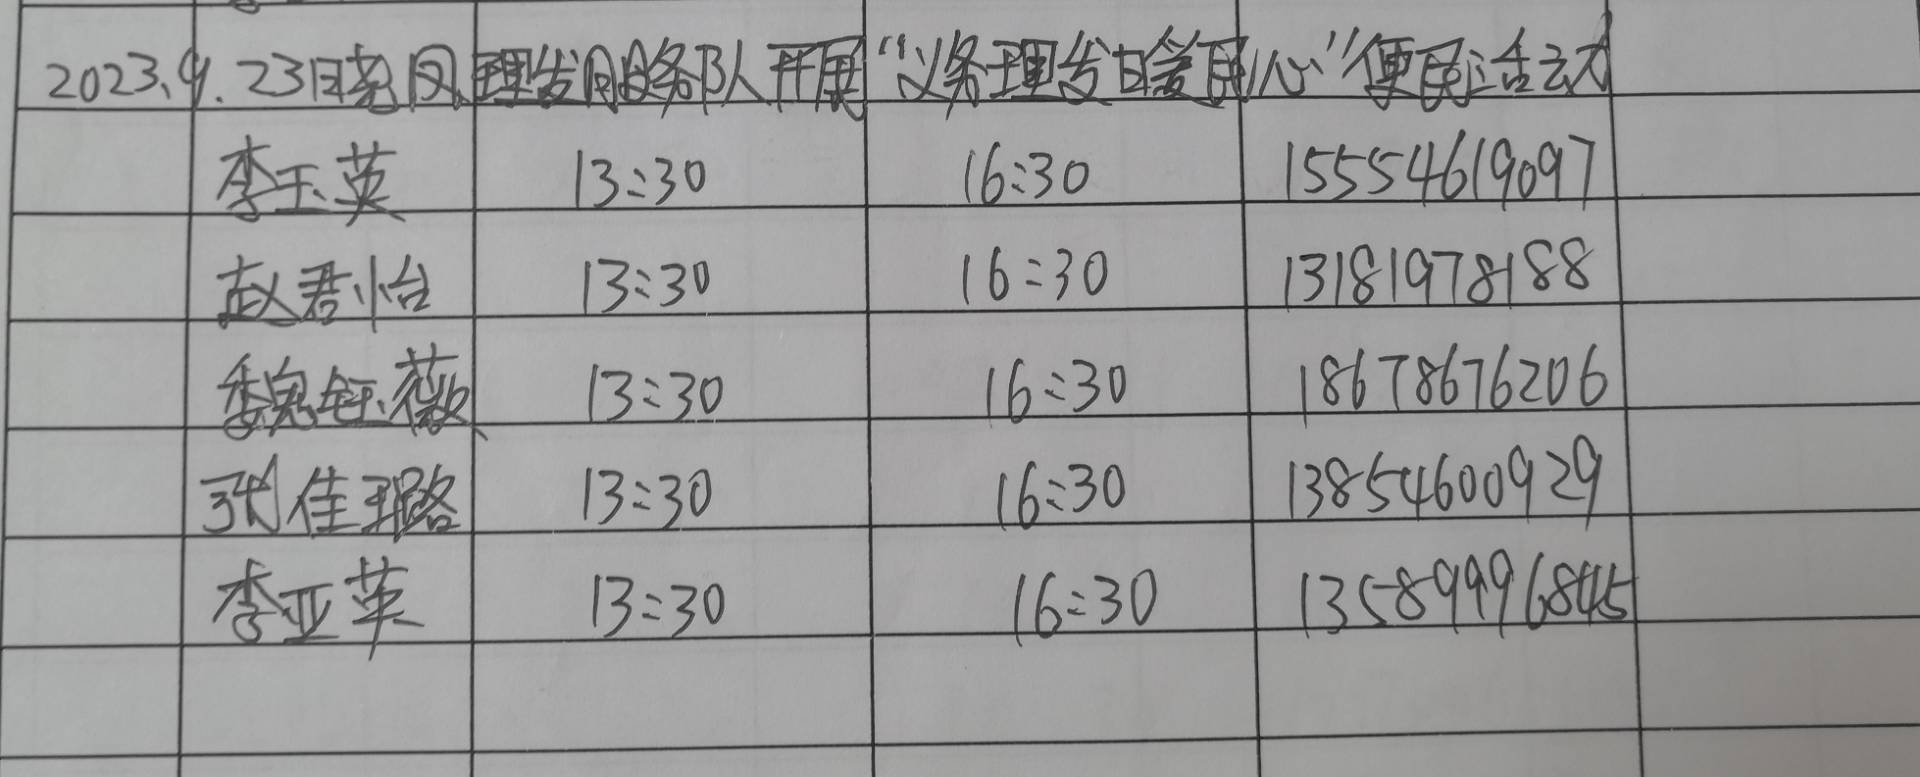 2023.9.23日惠风理发服务队开展“义务理发日暖民心”便民活动
李玉英 13:30 16:30 15554619097
赵君怡 13:30 16:30 13181978188
魏钰薇 13:30 16:30 18678676206
张佳璐 13:30 16:30 13854600929
李亚英 13:30 16:30 13589996845